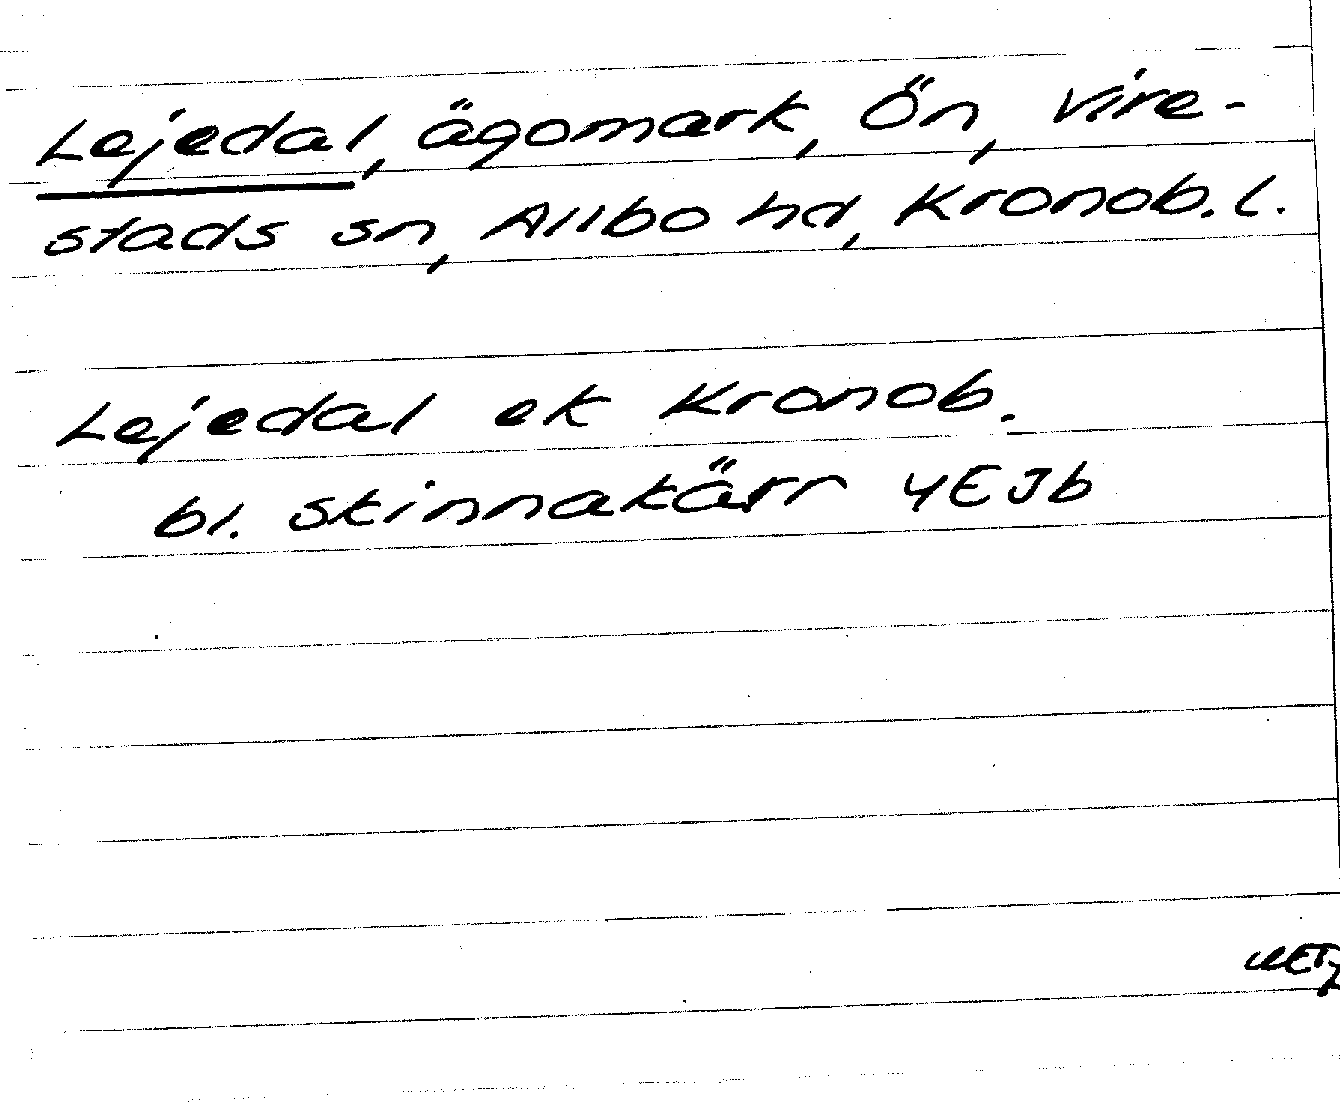 Lejedal, ägomark, Ön, Vire-
stads sn, Allbo hd, Kronob. l.
Lejedal ek Kronob.
bl. Skinnakärr YEJb